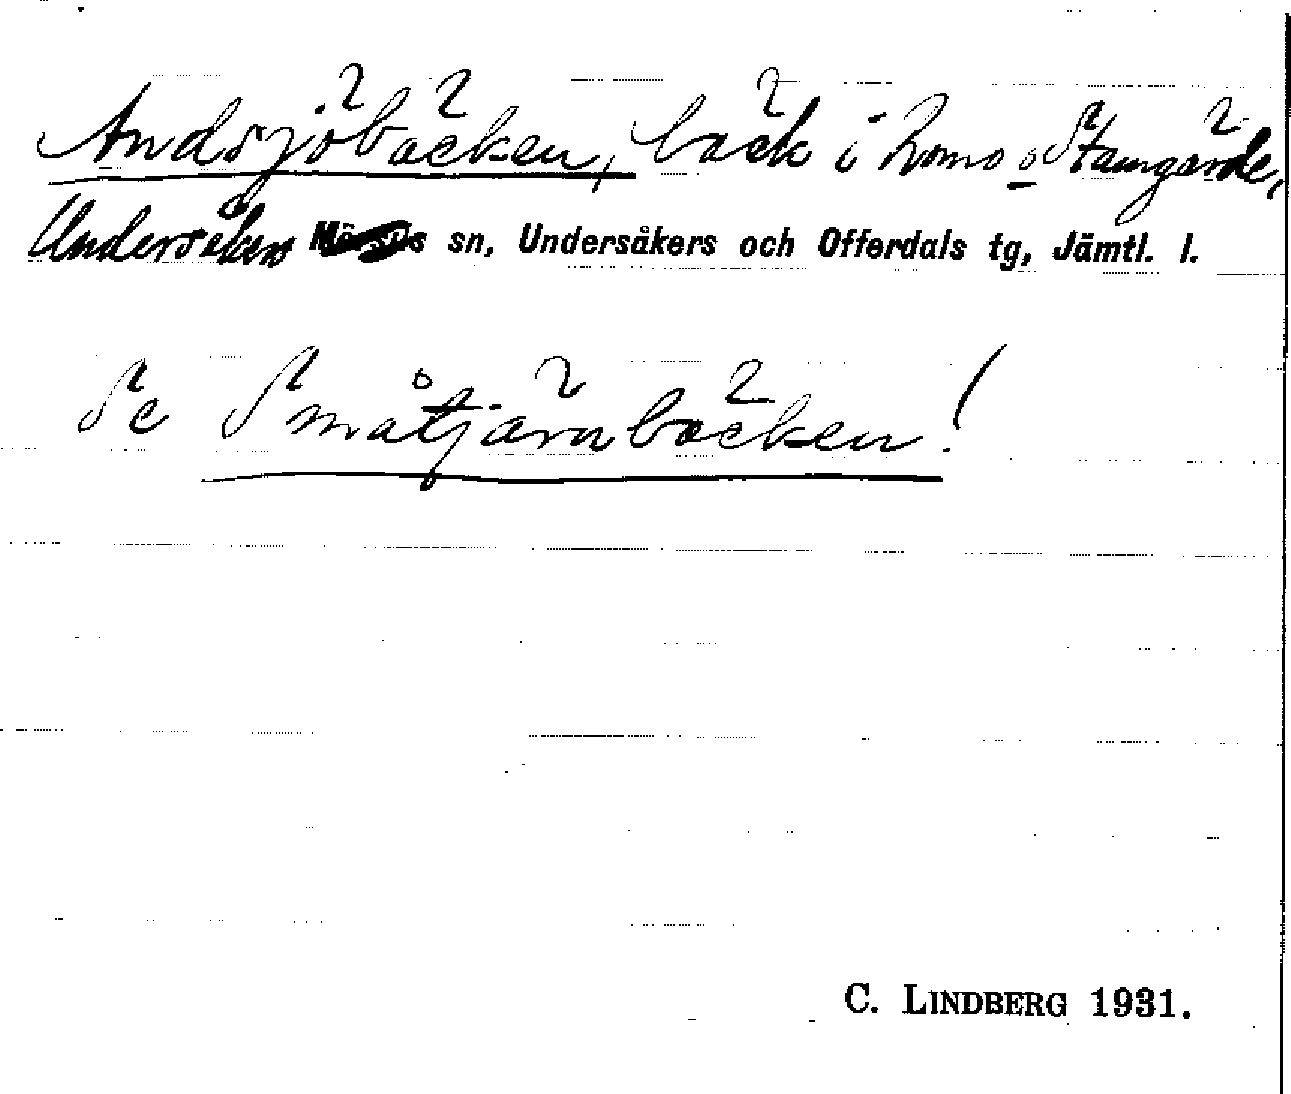 Andsjöbäcken, bäck i Romo o Stamgärde,
Undersåkers sn, Undersåkers och Offerdals tg, Jämtl. l.
Se Småtjärnbäcken!
C. LINDBERG 1931.